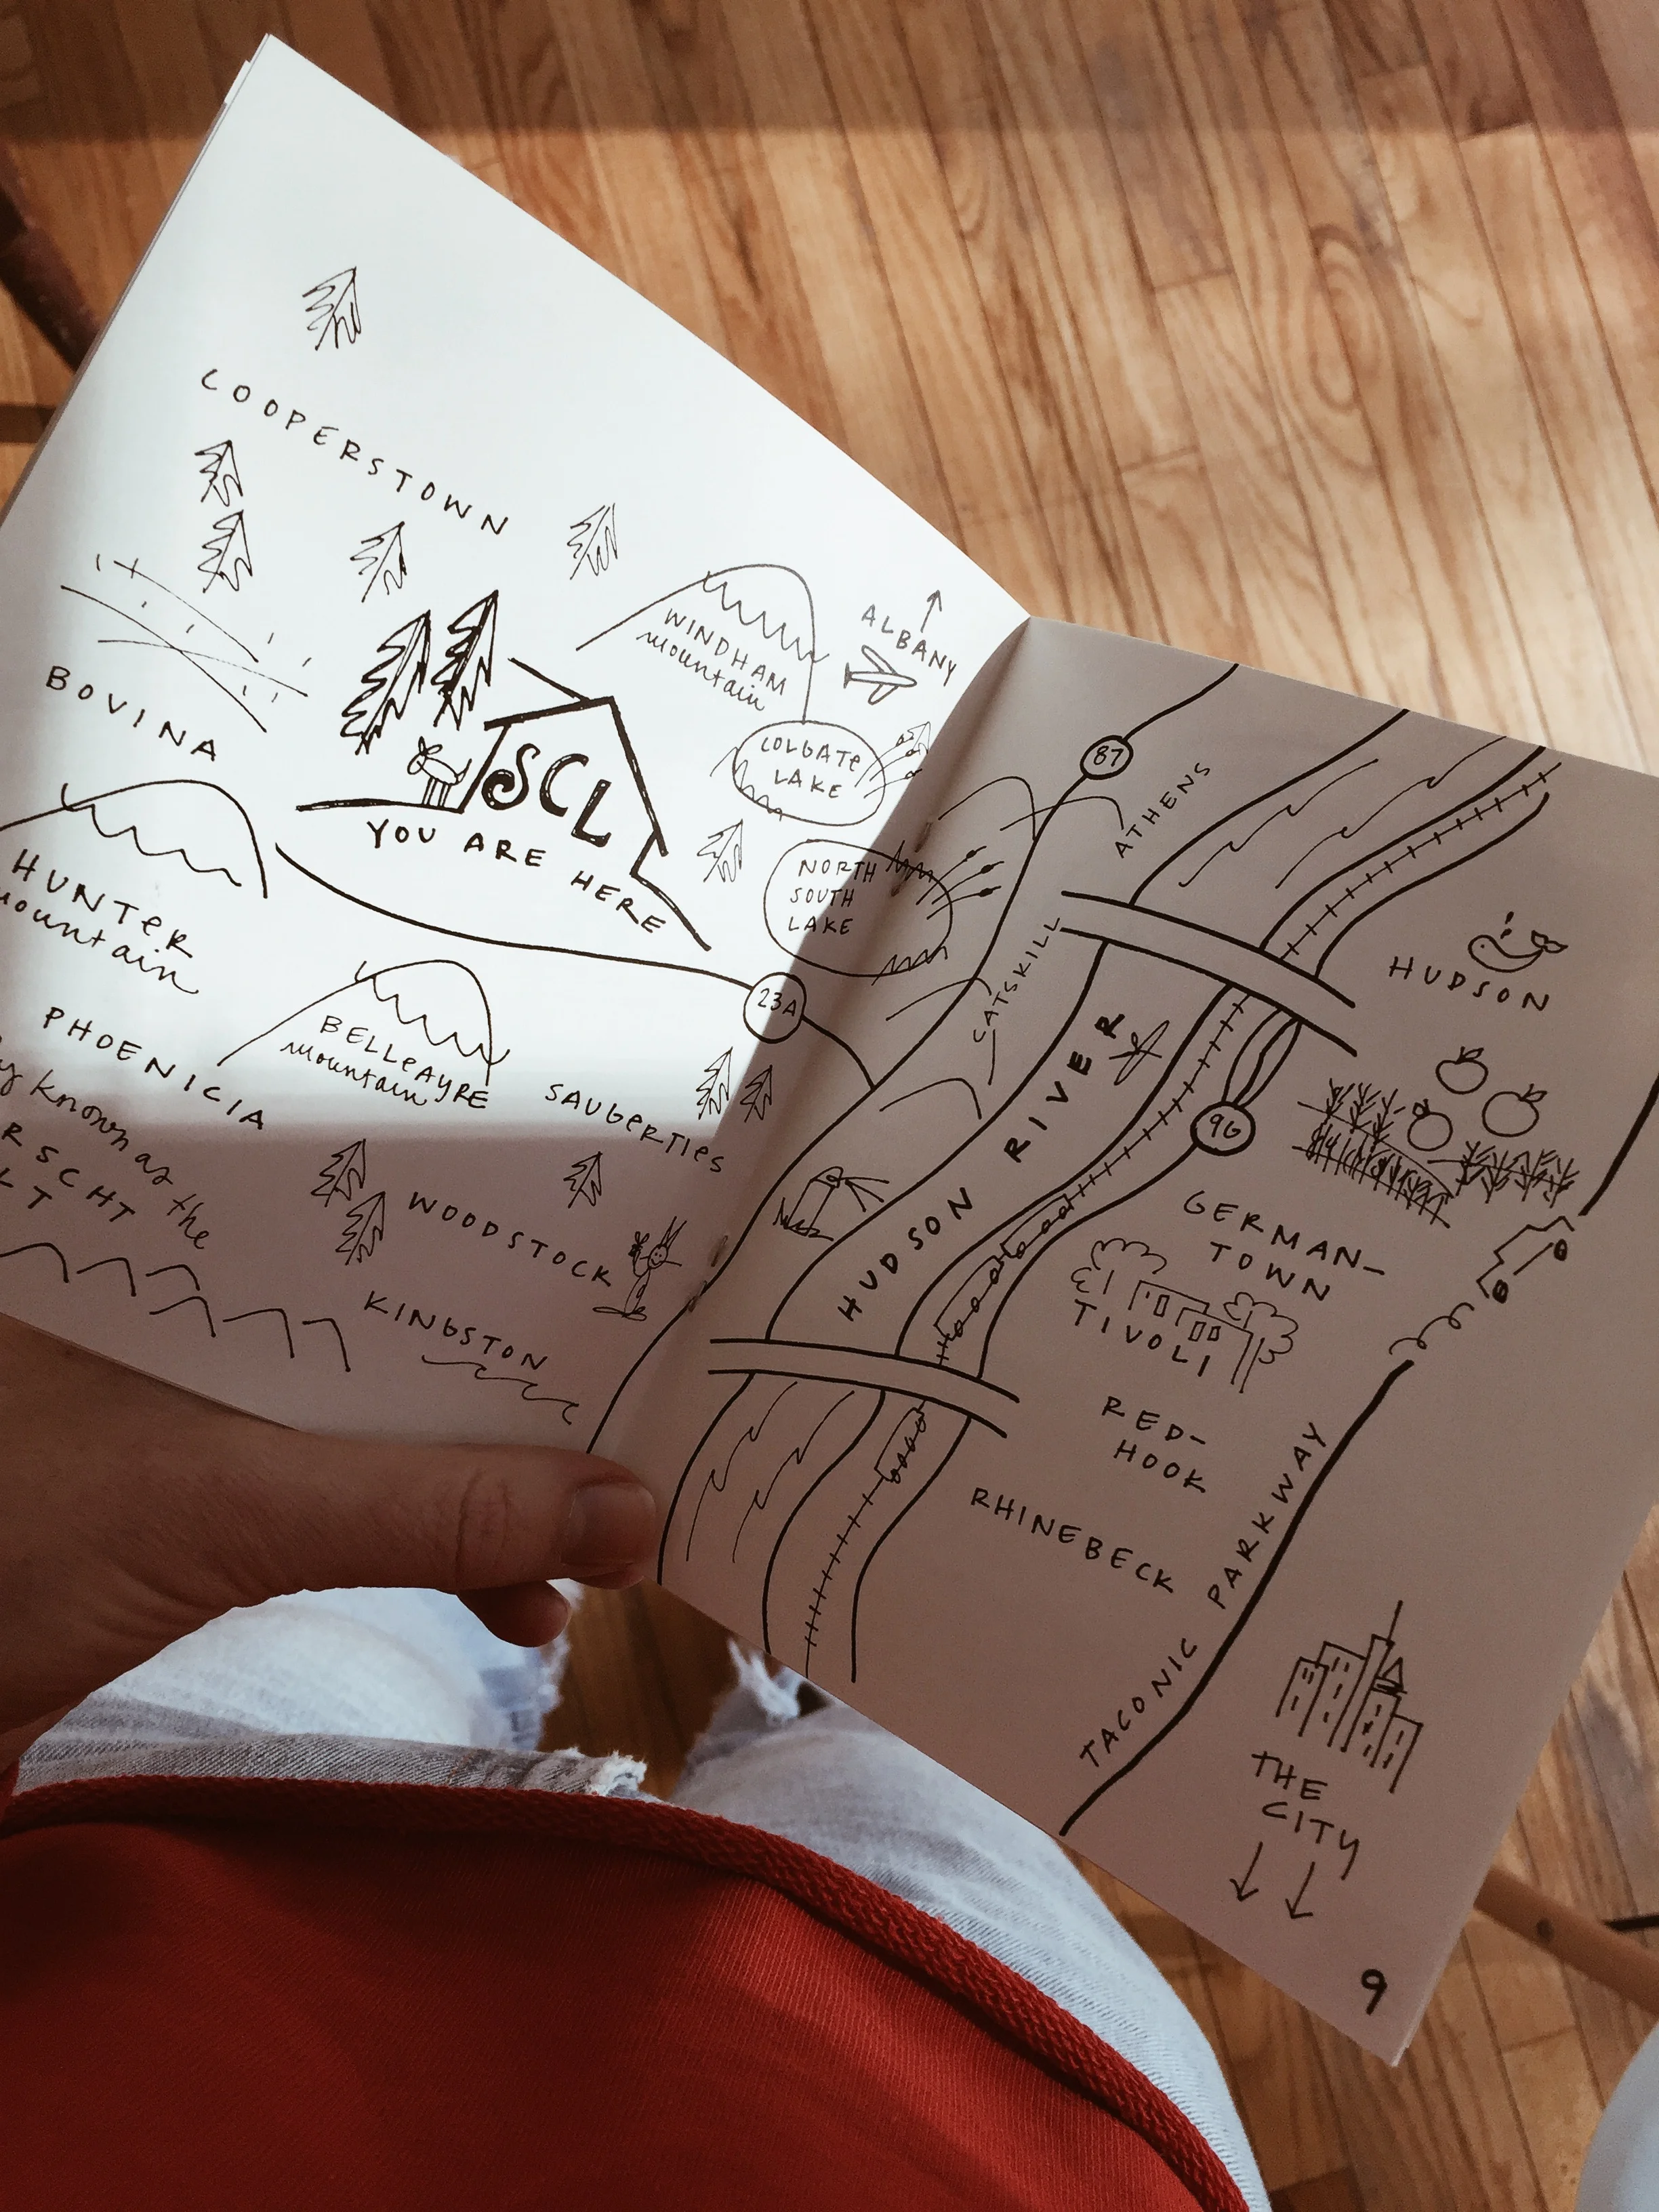 COOPERSTOWN
WINDHAM
mountain
ALBANY
BOVINA
SCL
YOU ARE HERE
COLGATE
LAKE
NORTH
SOUTH
LAKE
HUNTER
mountain
23A
BELLEAYRE
mountain
PHOENICIA
SAUGERTIES
known as the
WOODSTOCK
KINGSTON
87
ATHENS
CATSKILL
HUDSON
HUDSON RIVER
9G
GERMAN-
TOWN
TIVOLI
RED-
HOOK
RHINEBECK
TACONIC PARKWAY
THE
CITY
9